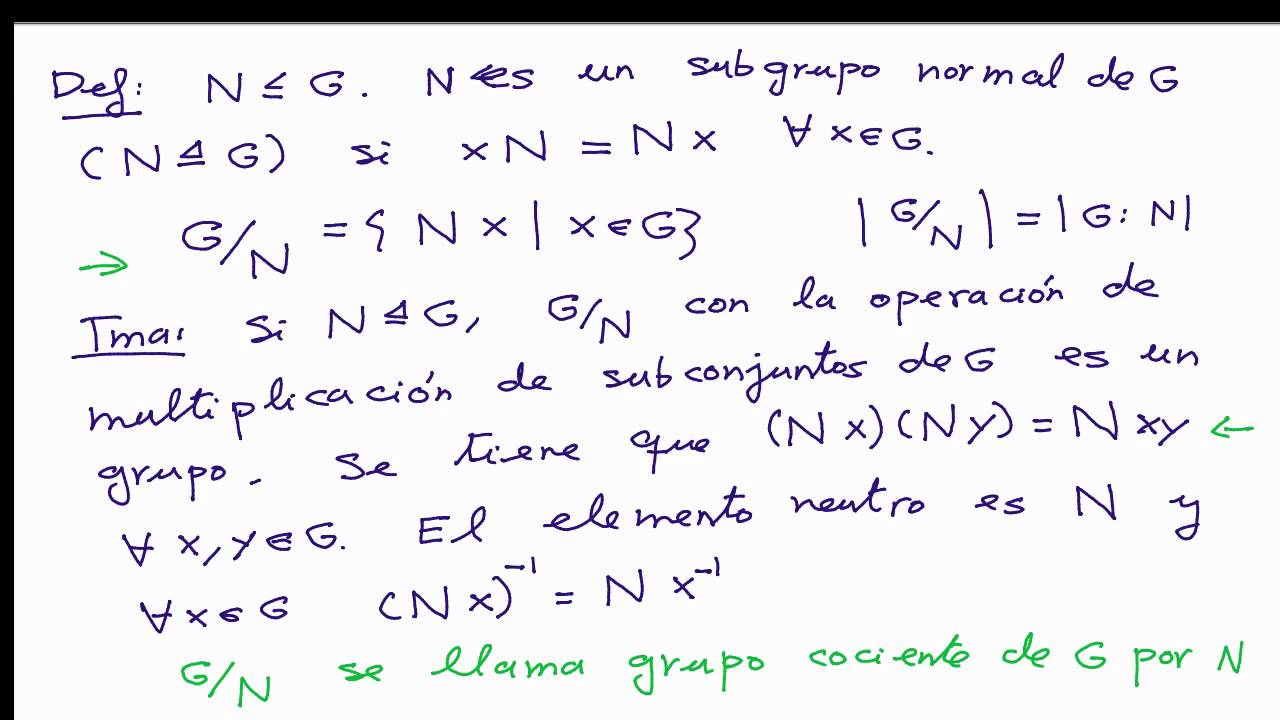 Def: N ≤ G. N es un subgrupo normal de G
(N ⊴ G) si xN = Nx ∀ x∈G.
→ G/N = { Nx | x∈G} |G/N| = |G:N|
Tma: Si N ⊴ G, G/N con la operación de
multiplicación de subconjuntos de G es un
grupo. Se tiene que (Nx)(Ny) = Nxy ←
∀ x,y∈G. El elemento neutro es N y
∀x∈G (Nx)⁻¹ = Nx⁻¹
G/N se llama grupo cociente de G por N